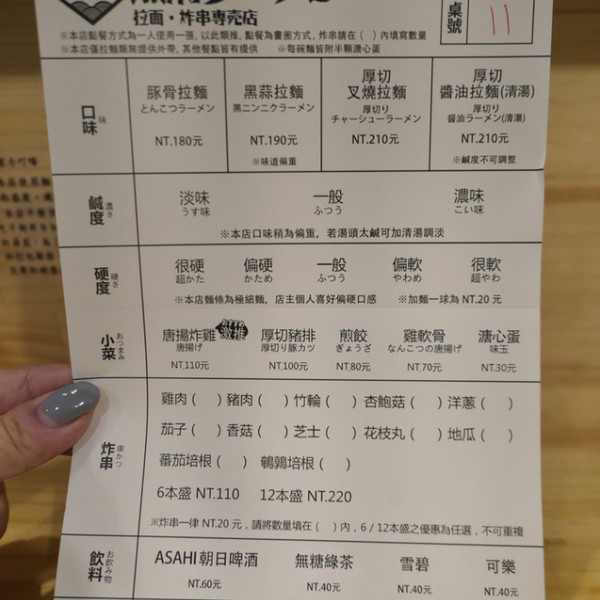 拉面・炸串專売店
桌號
11
※本店點餐方式為一人使用一張, 以此類推, 點餐為畫圈方式, 炸串請在 ( ) 內填寫數量
※本店僅拉麵類無提供外帶, 其他餐點皆有提供 ※每碗麵皆附半顆溏心蛋
口味 味
豚骨拉麵 黑蒜拉麵 厚切叉燒拉麵 厚切醬油拉麵(清湯)
とんこつラーメン 黒ニンニクラーメン 厚切りチャーシューラーメン 厚切り醤油ラーメン(清湯)
NT.180元 NT.190元 NT.210元 NT.210元
※味道偏重 ※鹹度不可調整
鹹度 濃さ
淡味 一般 濃味
うす味 ふつう こい味
※本店口味稍為偏重, 若湯頭太鹹可加清湯調淡
硬度 硬さ
很硬 偏硬 一般 偏軟 很軟
超かた かため ふつう やわめ 超やわ
※本店麵條為極細麵, 店主個人喜好偏硬口感 ※加麵一球為NT.20 元
小菜 おつまみ
唐揚炸雞 激推 厚切豬排 煎餃 雞軟骨 溏心蛋
唐揚げ 厚切り豚カツ ぎょうざ なんこつの唐揚げ 味玉
NT.110元 NT.100元 NT.80元 NT.70元 NT.30元
炸串 串かつ
雞肉 ( ) 豬肉 ( ) 竹輪 ( ) 杏鮑菇 ( ) 洋蔥 ( )
茄子 ( ) 香菇 ( ) 芝士 ( ) 花枝丸 ( ) 地瓜 ( )
蕃茄培根 ( ) 鵪鶉培根 ( )
6本盛 NT.110 12本盛 NT.220
※炸串一律 NT.20 元, 請將數量填在 ( ) 內, 6 / 12本盛之優惠為任選, 不可重複
飲料 お飲み物
ASAHI 朝日啤酒 無糖綠茶 雪碧 可樂
NT.60元 NT.40元 NT.40元 NT.40元